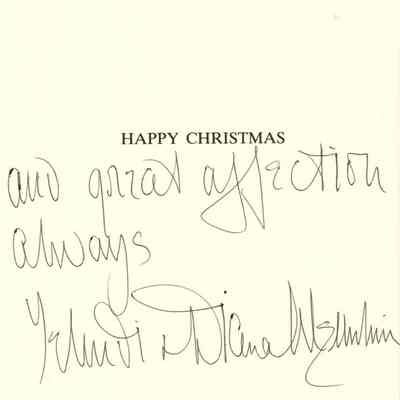 HAPPY CHRISTMAS
and great affection
always
Yehudi & Diana Menuhin